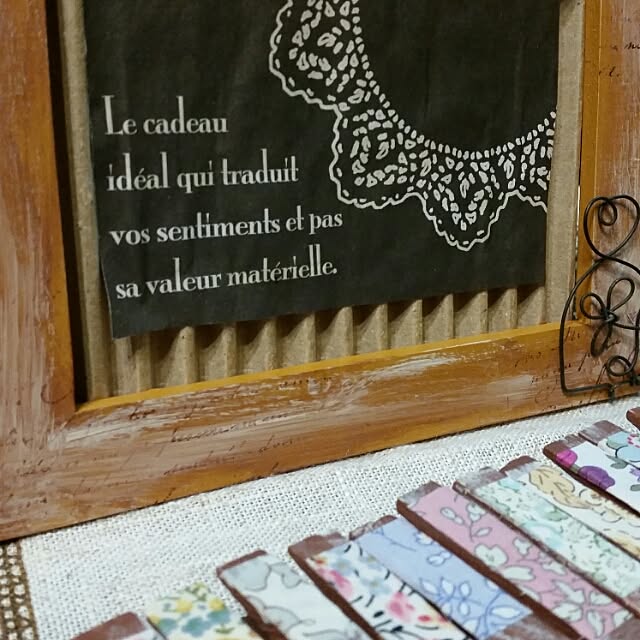 Le cadeau
idéal qui traduit
vos sentiments et pas
sa valeur matérielle.